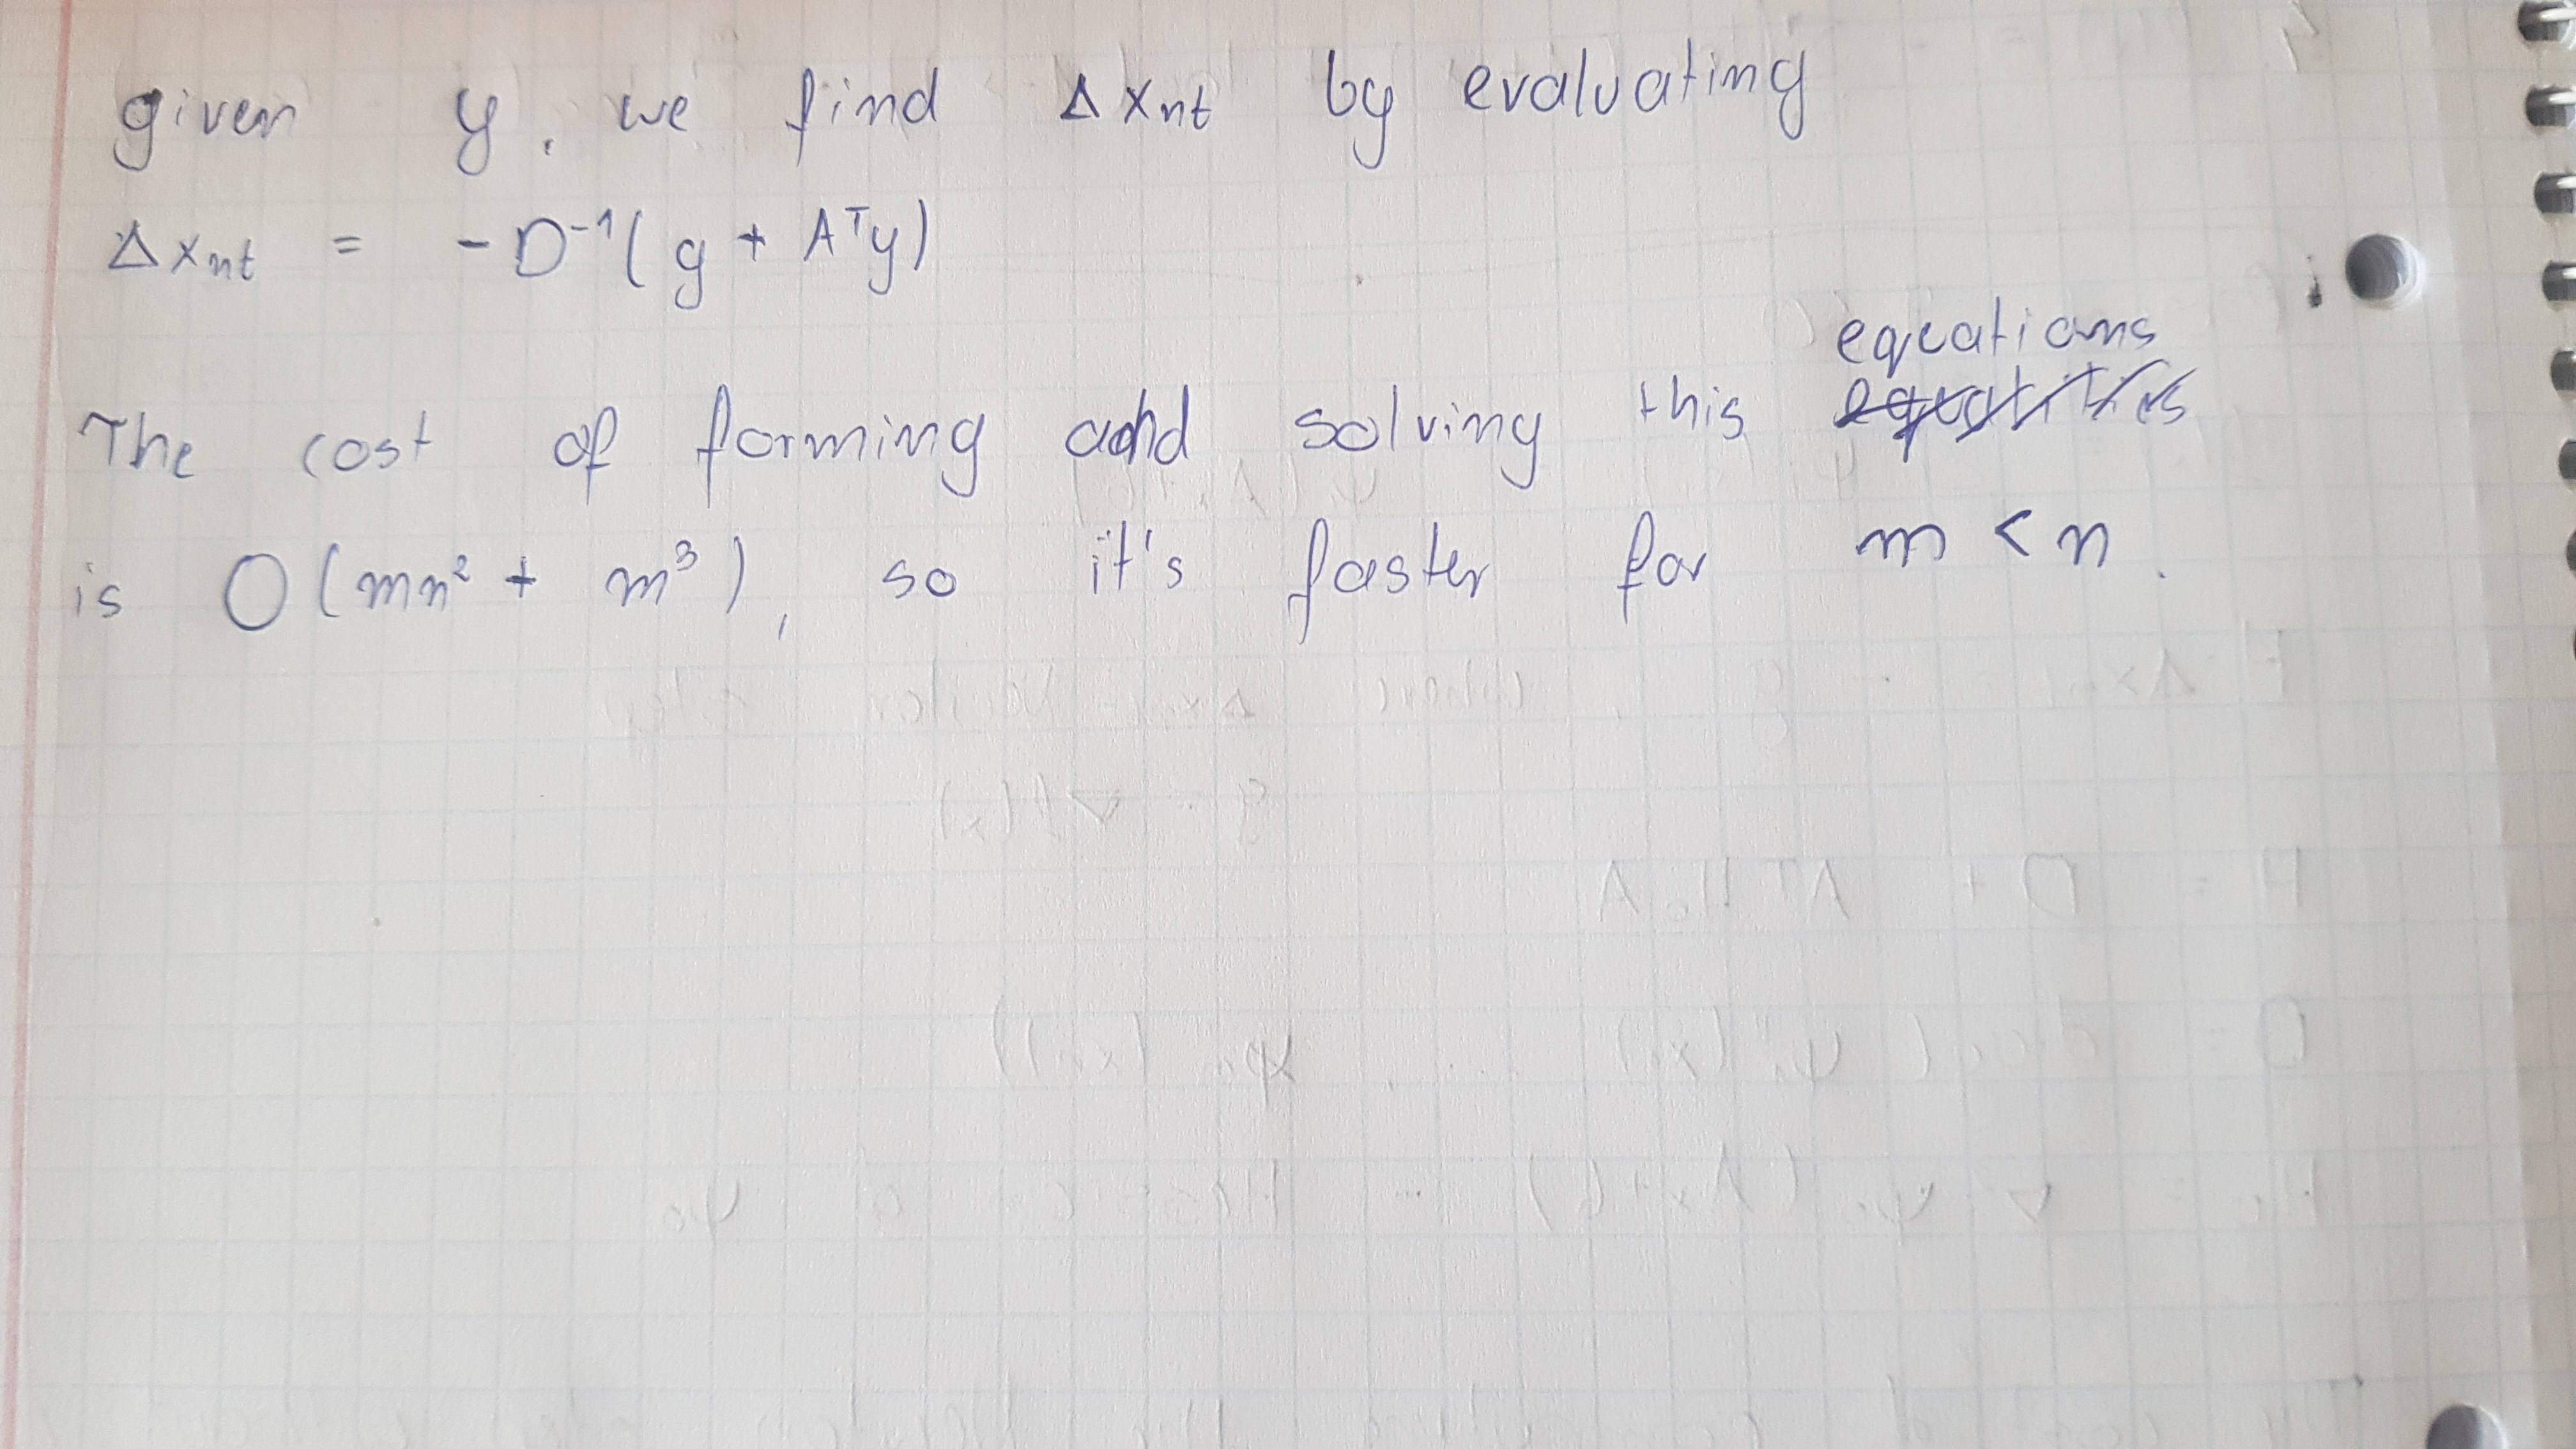 given y, we find Δx_nt by evaluating
Δx_nt = -D⁻¹(g + Aᵀy)
The cost of forming and solving this equations
is O(mn² + m³), so it's faster for m < n.